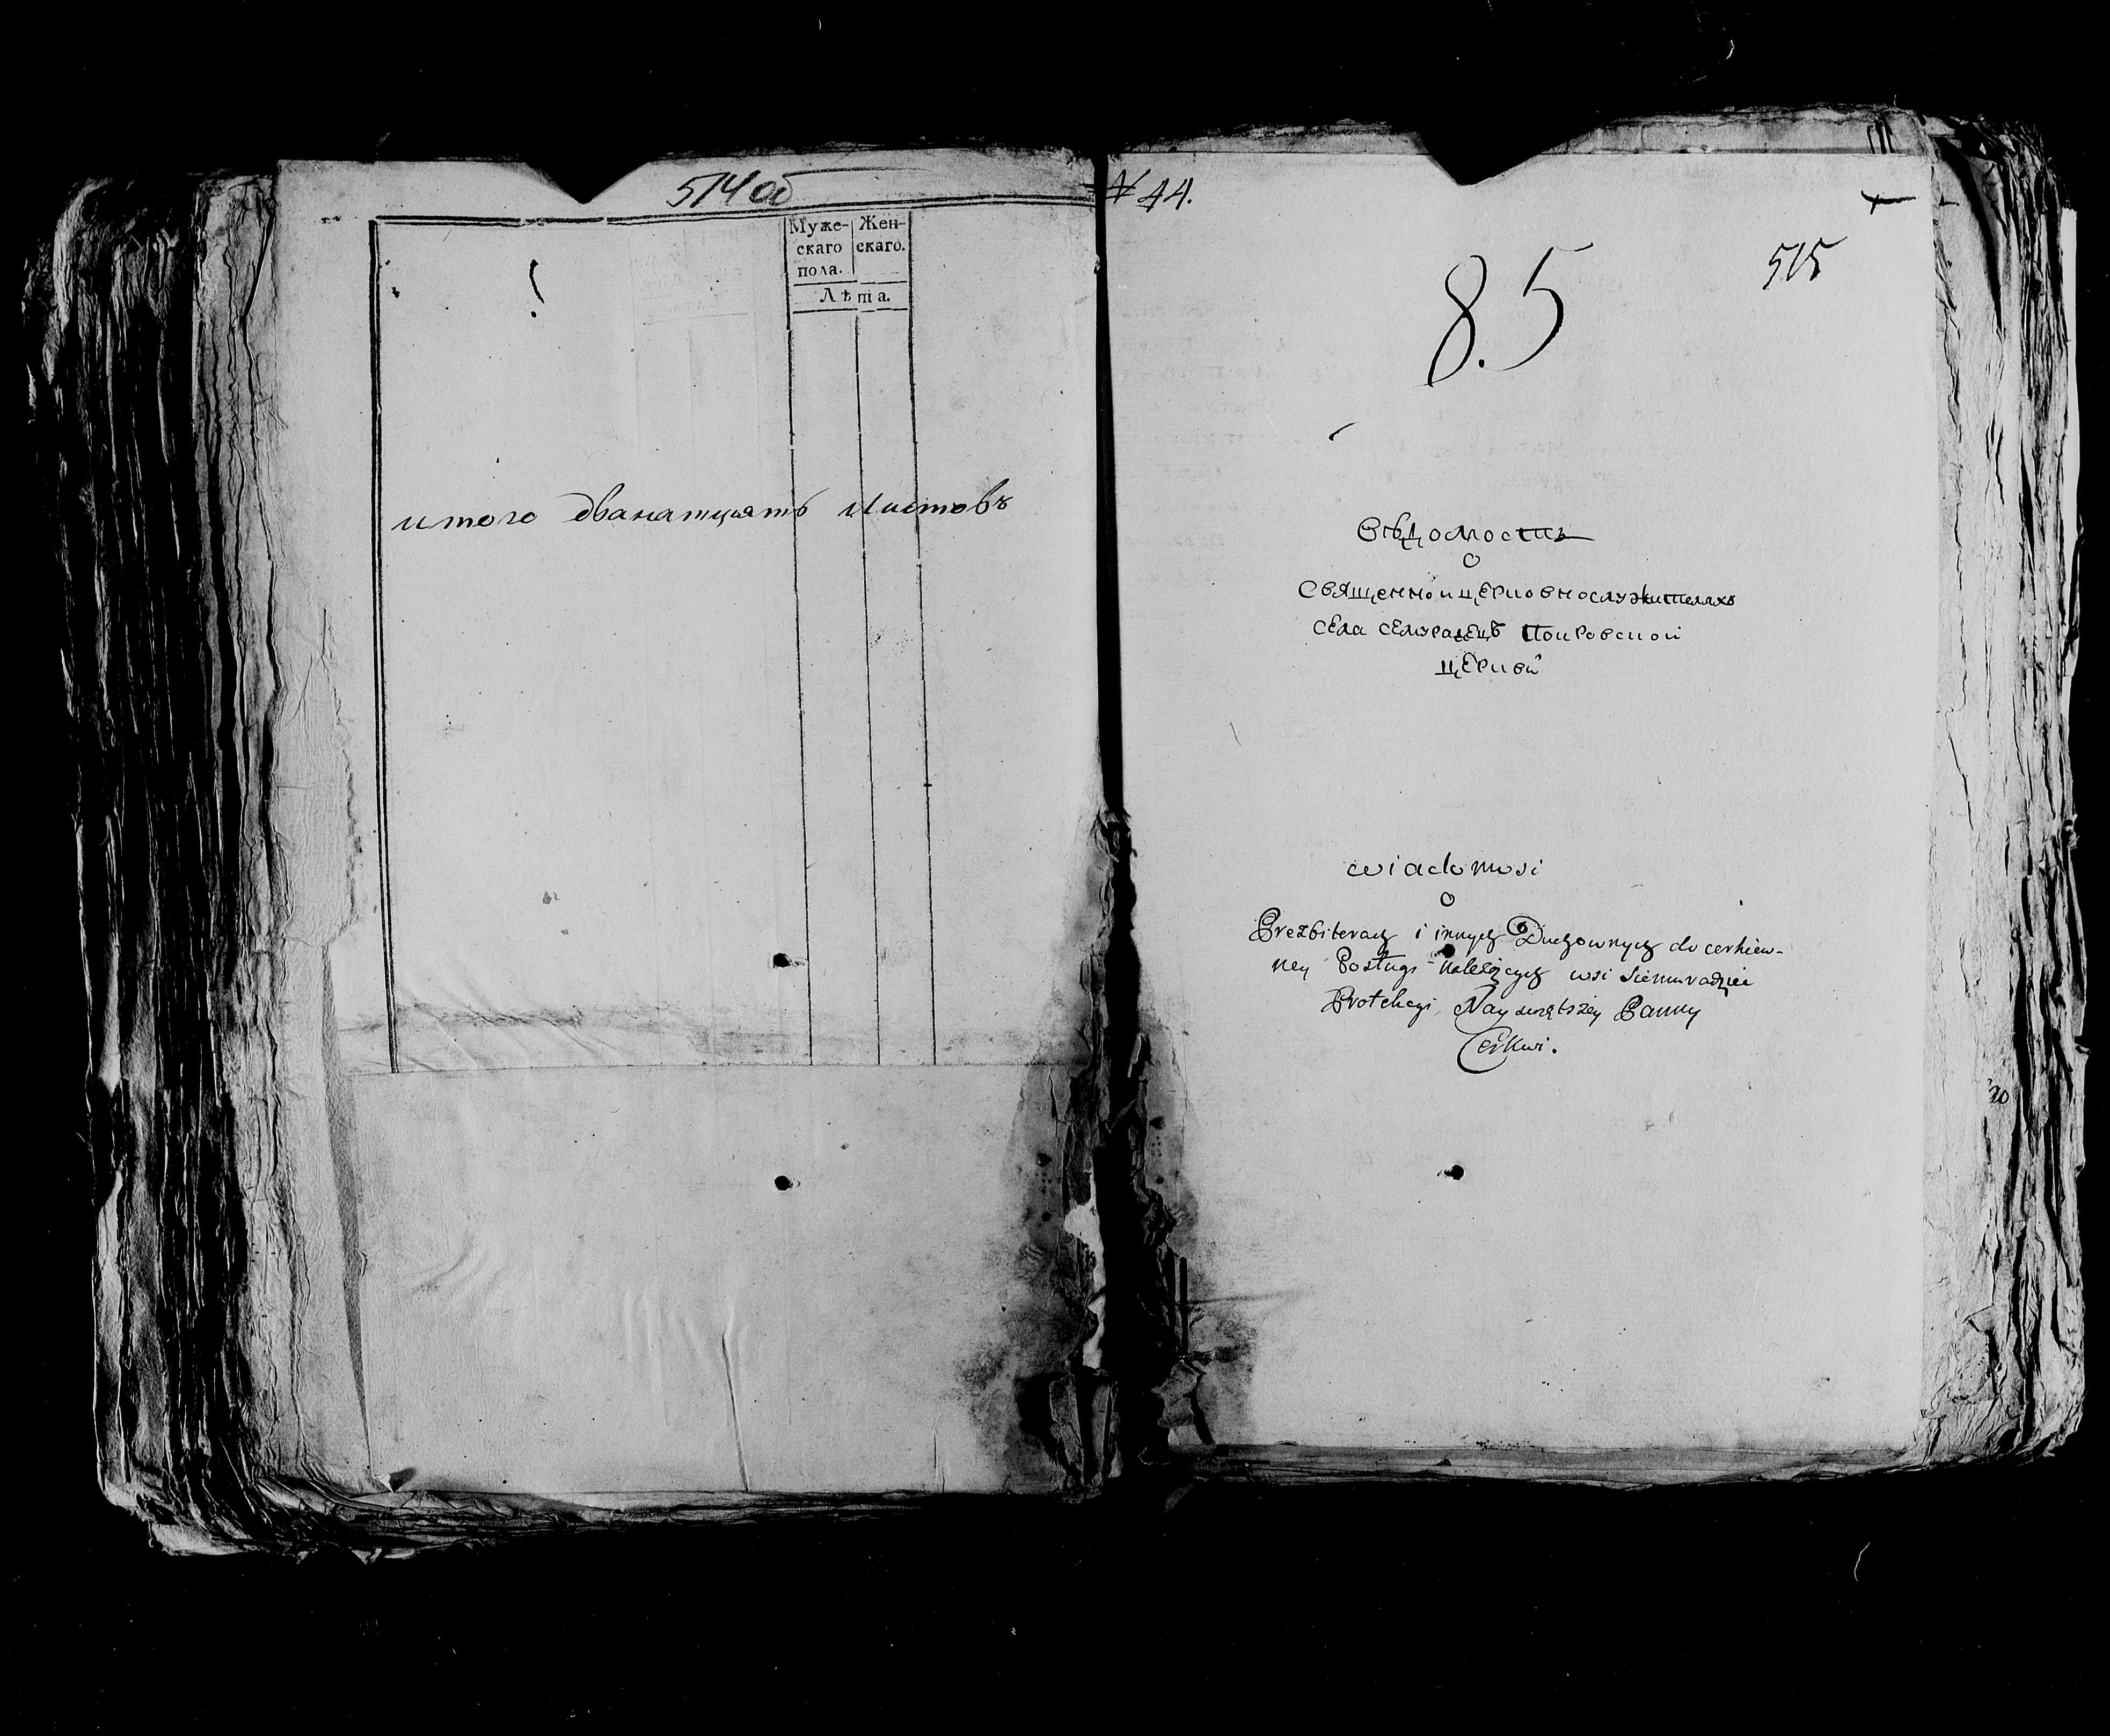 514 об
Муже- Жен-
скаго скаго.
пола.
Лѣта.
итого дванатцать листовъ
№ 44.
515
85
Вѣдомость
о
Священно и церковнослужителяхъ
села Семурадецъ Покровской
церкви
wiadomosi
o
Prezbiterach i innych Duchownych do cerkiew-
ney Posługi należących wsi Siemuradziei
Protekcyi Nayswiętszey Panny
Cerkwi.
20